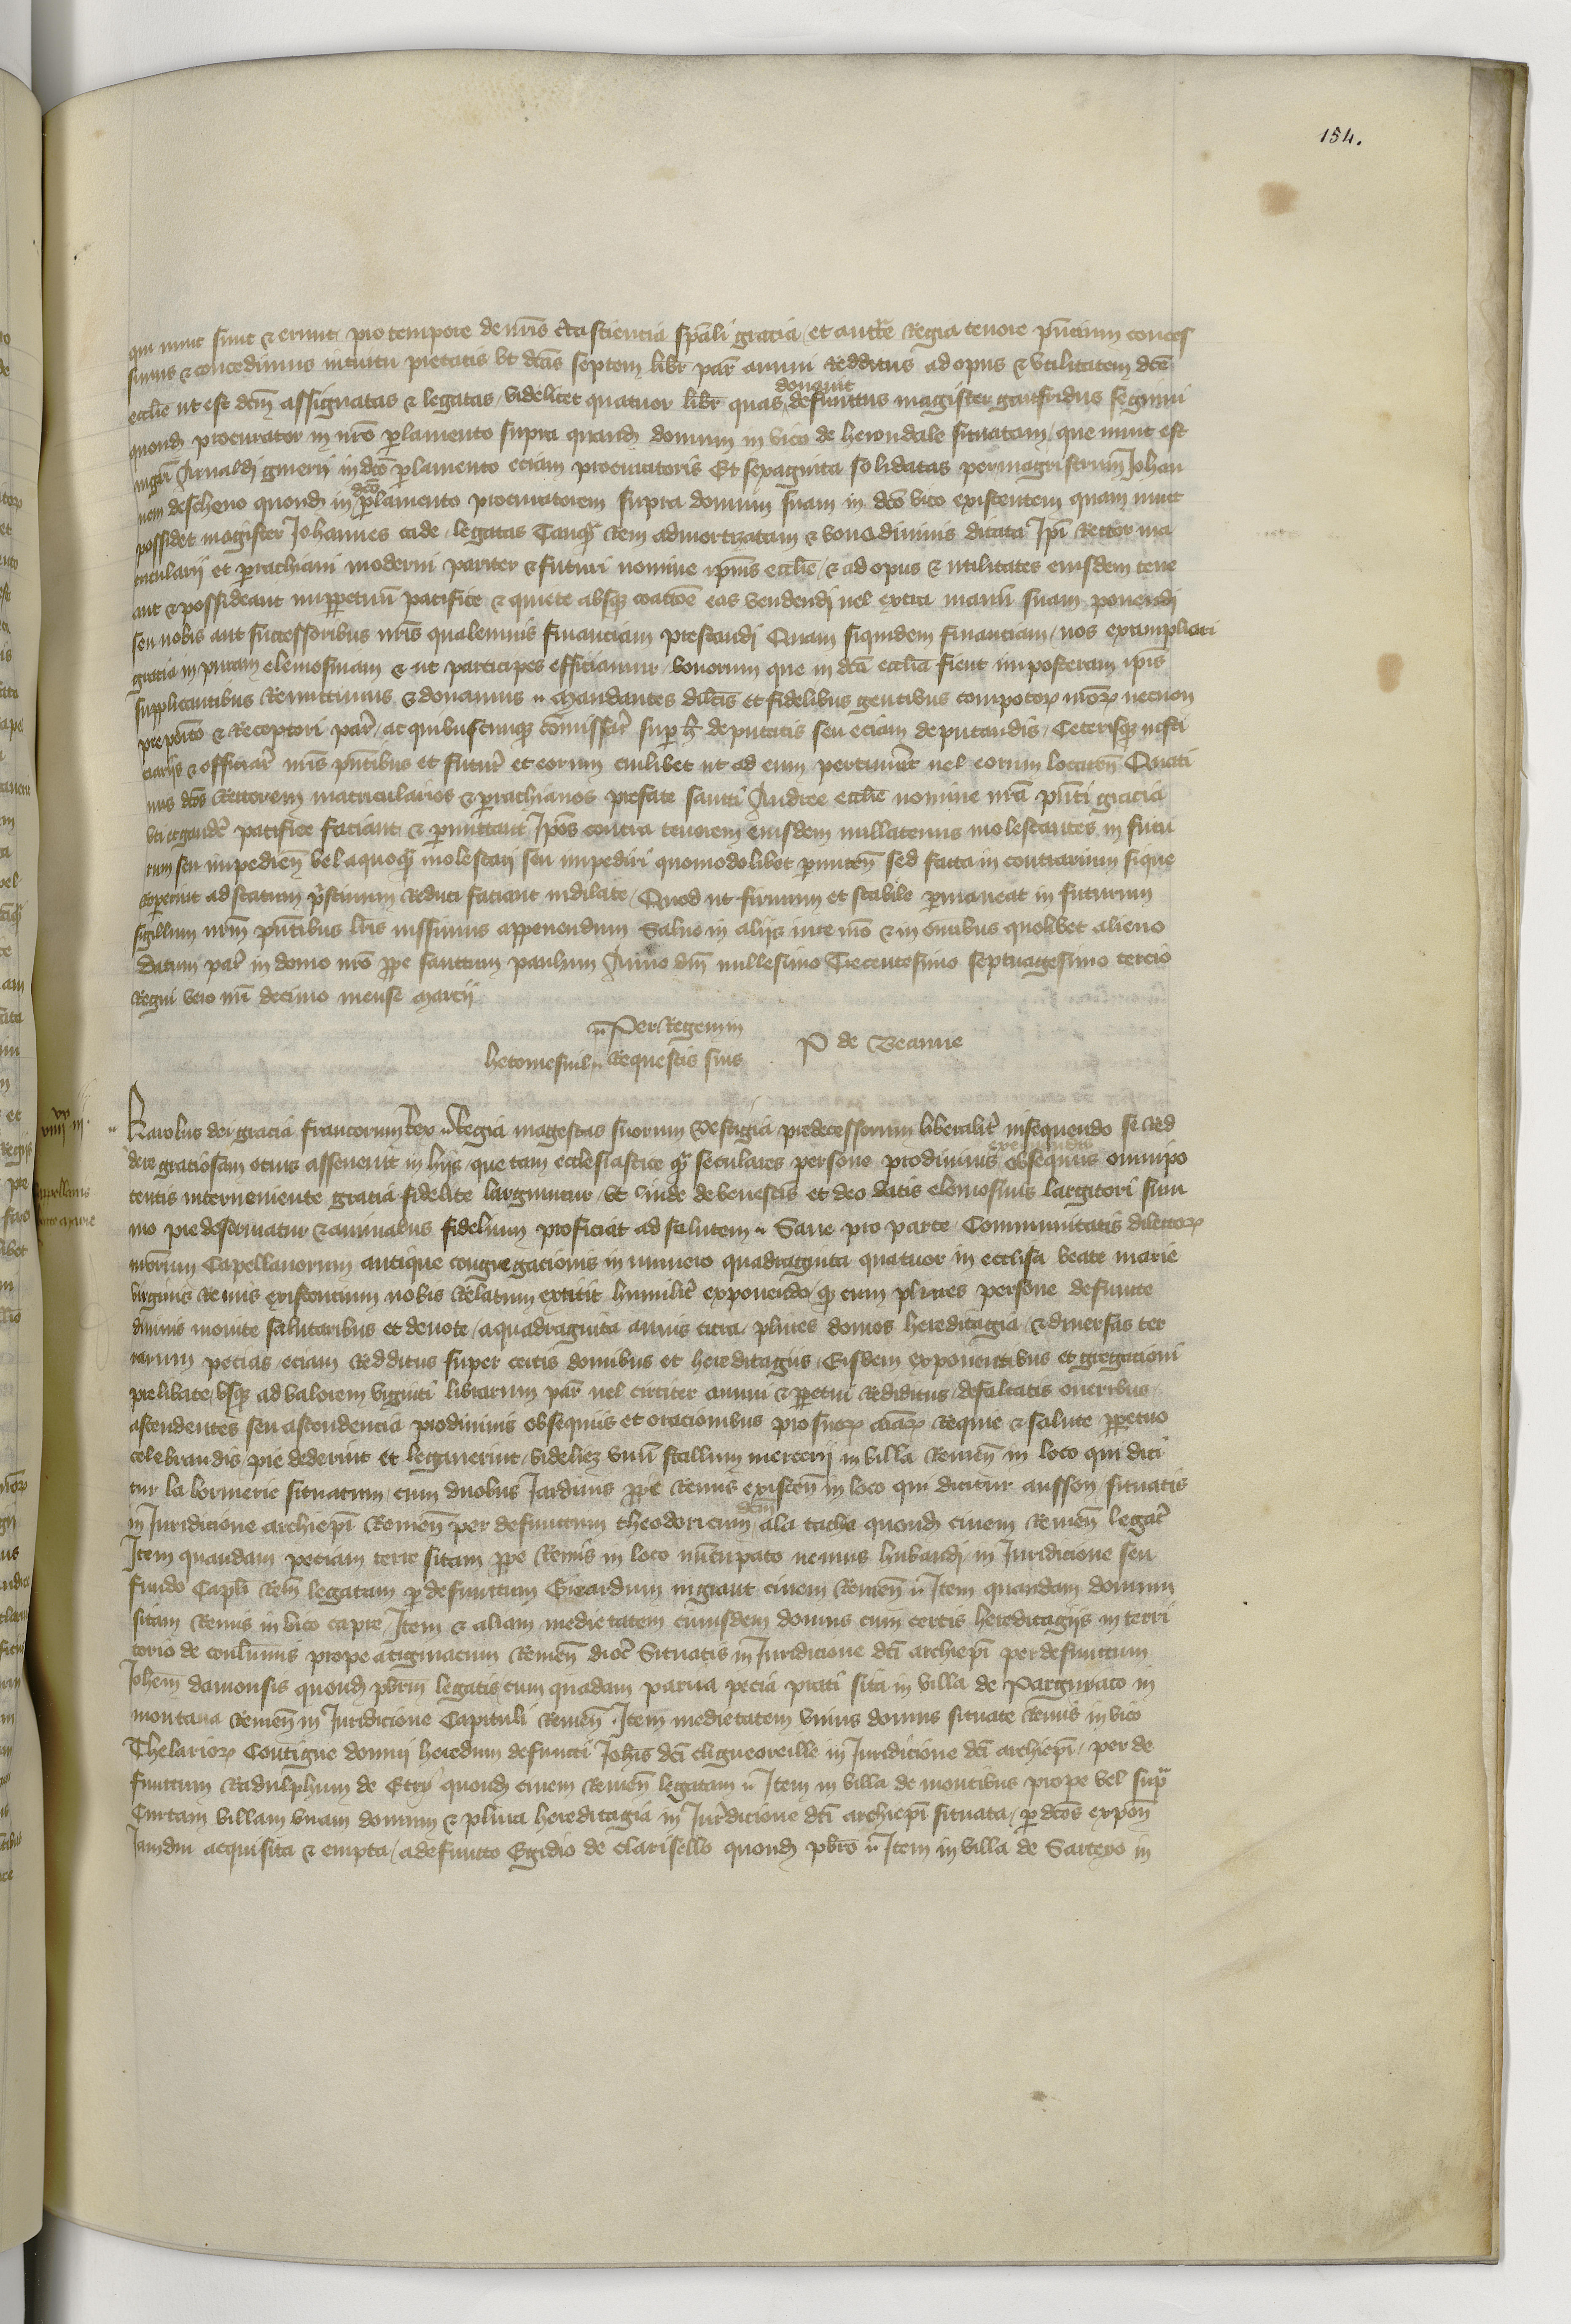 154.
qui nunc sunt & erunt pro tempore de nr̄is c̄ta sciencia sp̄ali gracia et auct̄te Regia tenore p̄ncium conces
simus & concedimus intuitu pietatis ut dc̄as septem libr̄ par̄ annui Redditus ad opus & vtilitatem dc̄e
eccl̄ie ut est dc̄m assignatas & legatas / videlicet quatuor libr̄ quas donauit defunctus magister gaufridus seguini
quond̄ procurator in nr̄o p̄lamento supra quand̄ domum in vico de herondale situatam / que nunc est
magr̄i Arnaldi in dc̄o p̄lamento eciam procuratoris Et sexaginta solidatas per magistrum Johan
nem descheno quond̄ in dc̄o p̄lamento procuratorem supra domum suam in dc̄o vico existentem quam nunc
possidet magister Johannes cade / legatas Tanq̄ Rem admortizatam & diuinis dicata Ip̄i Rector ma
tricularii et p̄rochiani moderni pariter & futuri nomine ip̄ius eccl̄ie / & ad opus & utilitates eiusdem tene
ant & possideant imp̄petuū pacifice & quiete absq̄ coactōe eas vendendi uel extra manū suam ponendi
seu nobis aut successoribus nr̄is qualemuis financiam prestandi Quam siquidem financiam / nos ex ampliori
gracia in puram elemosinam & ut participes efficiamur bonorum que in dc̄a eccl̄ia fient imposterum ip̄is
supplicantibus Remittimus & donamus Mandantes dil̄cis et fidelibus gentibus compotoꝝ nr̄oꝝ necnon
preposito & Receptori par̄ / ac quibuscunq̄ cōmissar̄ sup̄ h̄ deputatis seu eciam deputandis / Ceterisq̄ iusti
ciariis & officiar̄ nr̄is p̄ntibus et futur̄ et eorum cuilibet ut ad eum pertinuer̄t uel eorum locaten̄ Quati
nus dc̄os Rectorem matricularios & p̄rochianos prefate sancti Andree eccl̄ie nomine nr̄a p̄nti gracia
uti et gaudē pacifice faciant & p̄mittant Ip̄os contra tenorem eiusdem nullatenus molestantes in futu
rum seu impedien̄ vel a quoq̄ molestari seu impediri quomodolibet p̄mitten̄ sed facta in contrarium sique
Reperint ad statum p̄stinum Reduci faciant indilate / Quod ut firmum et stabile p̄maneat in futurum
sigillum nr̄m p̄ntibus lr̄is iussimus appenendum Saluo in aliis iure nr̄o & in om̄ibus quolibet alieno
Datum par̄ in domo nr̄a p̄pe sanctum paulum Anno dn̄i millesimo Trecentesimo septuagesimo tercio
Regni vero nr̄i decimo mense Marcii
Per Regem in
Requestis suis P de
Karolus dei gracia francorum Rex Regia magestas suorum vestigia predecessorum liberalit̄ insequendo se Red
dere graciosam ocius assueuit in hiis que tam ecclesiastice q̄ seculares persone pro diuinis obsequiis omnipo
tentis interueniente gracia fidelit̄e largiuntur / ut inde de benefactis et deo datis elemosinis largitori sum
mo pie deseruiatur & animabus fidelium proficiat ad salutem Sane pro parte Communitatis dilectoꝝ
nr̄orum Capellanorum antique congregacionis in numero quadraginta quatuor in ecclisa beate marie
virginis Remis existencium nobis Relatum extitit humilit̄ exponendo / q̄ cum plures persone defuncte
diuinis monite salutaribus et deuote / a quadraginta annis citra / plures domos hereditagia & diuersas ter
rarum pecias / eciam Redditus super certis domibus et hereditagiis / Eisdem exponentibus et gregacioni
prelibate / usq̄ ad valorem viginti librarum par̄ uel circiter annui & p̄petui Redditus / defalcatis oneribus
ascendentes seu ascendencia pro diuinis obsequiis et oracionibus pro suoꝝ aīaꝝ Requie & salute p̄petuo
celebrandis / pie dederint et legauerint / videlicꝫ vnū stallum mercerii in villa Remen̄ in loco qui dici
tur la lormerie situatum / cum duobus Jardinis p̄pe Remis existen̄ in loco qui dicitur ausson situatis
in Juridicione archiep̄i Remen̄ per defunctum theodoricum dc̄m ala tache quond̄ ciuem Remen̄ legat̄
Item quandam peciam terre sitam p̄pe Remis in loco nūcupato nemus hubandi in Juridicione seu
fundo Capl̄i Rem̄ legatam p̄ defunctum Girardum ciuem Remen̄ Item quandam domum
sitam Remis in vico capre / Item & aliam medietatem eiusdem domus cum certis hereditagiis in terri
torio de prope atiginacum Remen̄ dioc̄ Situatis in Juridicione dc̄i archiep̄i per defunctum
Joh̄em damonsis quond̄ pb̄rm legatis / cum quadam parua pecia prati sita in villa de Pargniaco in
montana Remen̄ in Juridicione Capituli Remen̄ Item medietatem vnius domus situate Remis in vico
Thelarioꝝ Contigue domui heredum defuncti Joh̄is dc̄i cligneoreille in Juridicione dc̄i archiep̄i / per de
functum Radulphum de Etry quond̄ ciuem Remen̄ legatam Item in villa de montibus prope vel sup̄
Curtam villam vnam domum & plura hereditagia in Juridicione dc̄i archiep̄i situata / p̄ dc̄os expon̄
Jamdiu acquisita & empta / a defuncto Egidio de clarisello quond̄ pb̄ro Item in villa de Sarceyo in